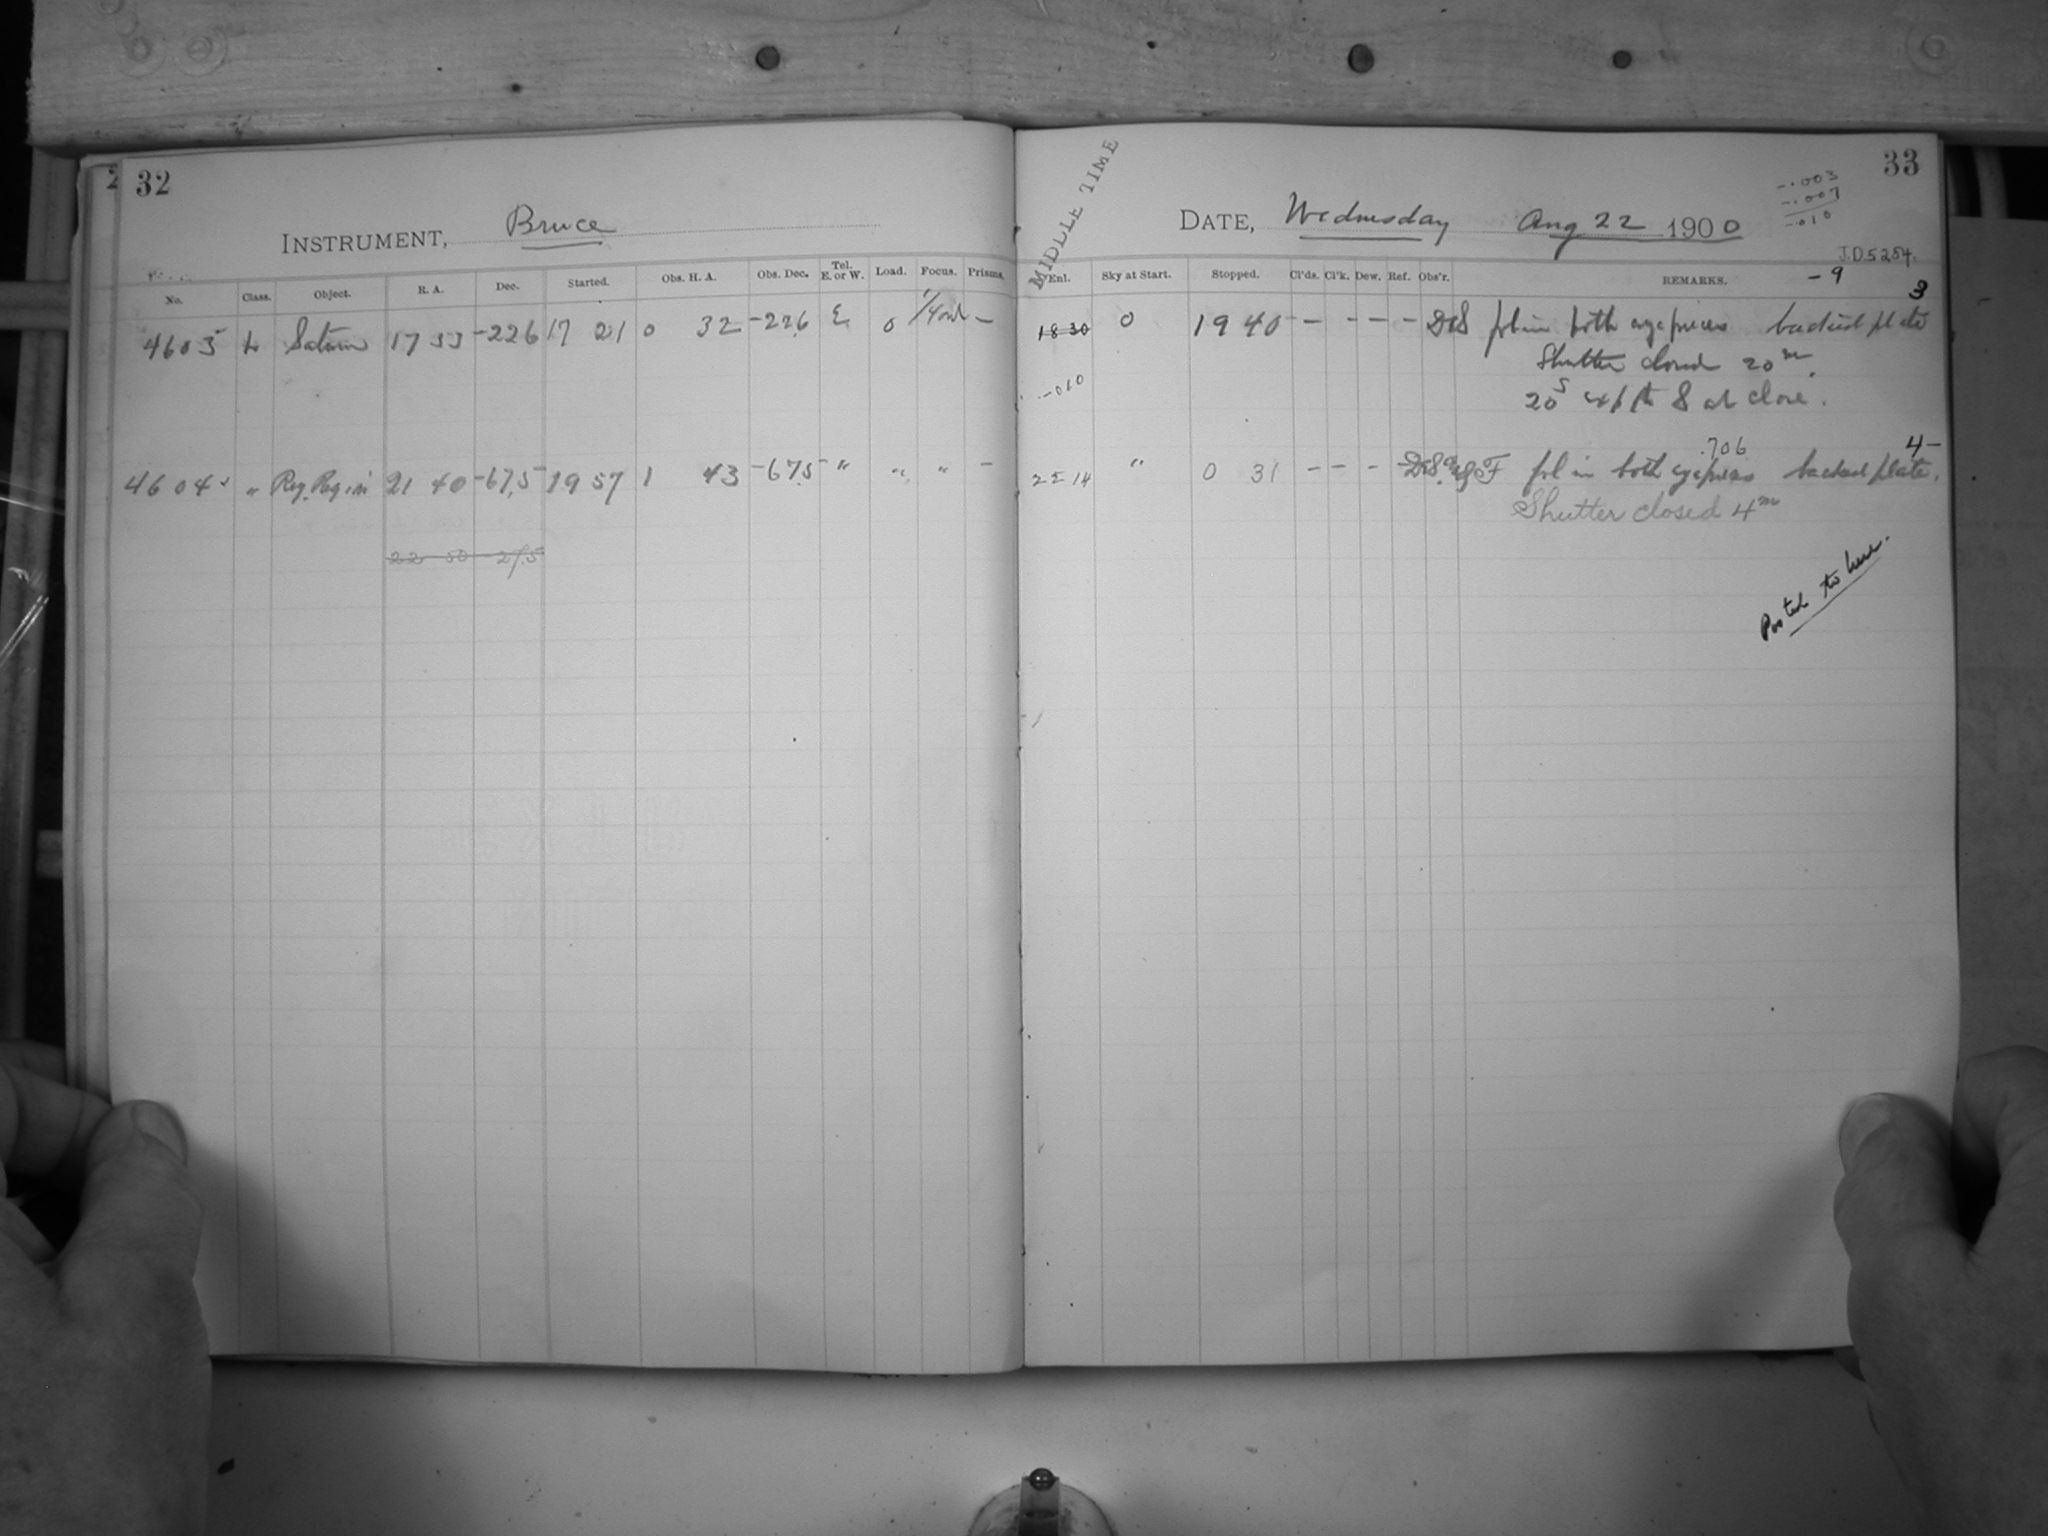 32
INSTRUMENT, Bruce
No. Class. Object. R. A. Dec. Started. Obs. H. A. Obs. Dec. Tel. E. or W. Load. Focus. Prisms.
4603 L Saturn 17 53 -22.6 17 21 0 32 -22.6 E 0 —
4604 " Reg. Reg in 21 40 -67.5 19 57 1 43 -67.5 " " " —
22 50 -27.5
33
MIDDLE TIME
-.003
-.007
-.010
DATE, Wednesday Aug 22 1900
J.D. 5254.
Enl. Sky at Start. Stopped. Cl'ds. Cl'k. Dew. Ref. Obs'r. REMARKS. -9
3
18 30 0 19 40 — — — — fol in both eyepieces backed plate
Shutter closed 20m.
-010
20s S at close.
.706 4-
22 14 " 0 31 — — — fol in both eyepieces backed plate.
Shutter closed 4m
Posted to here.